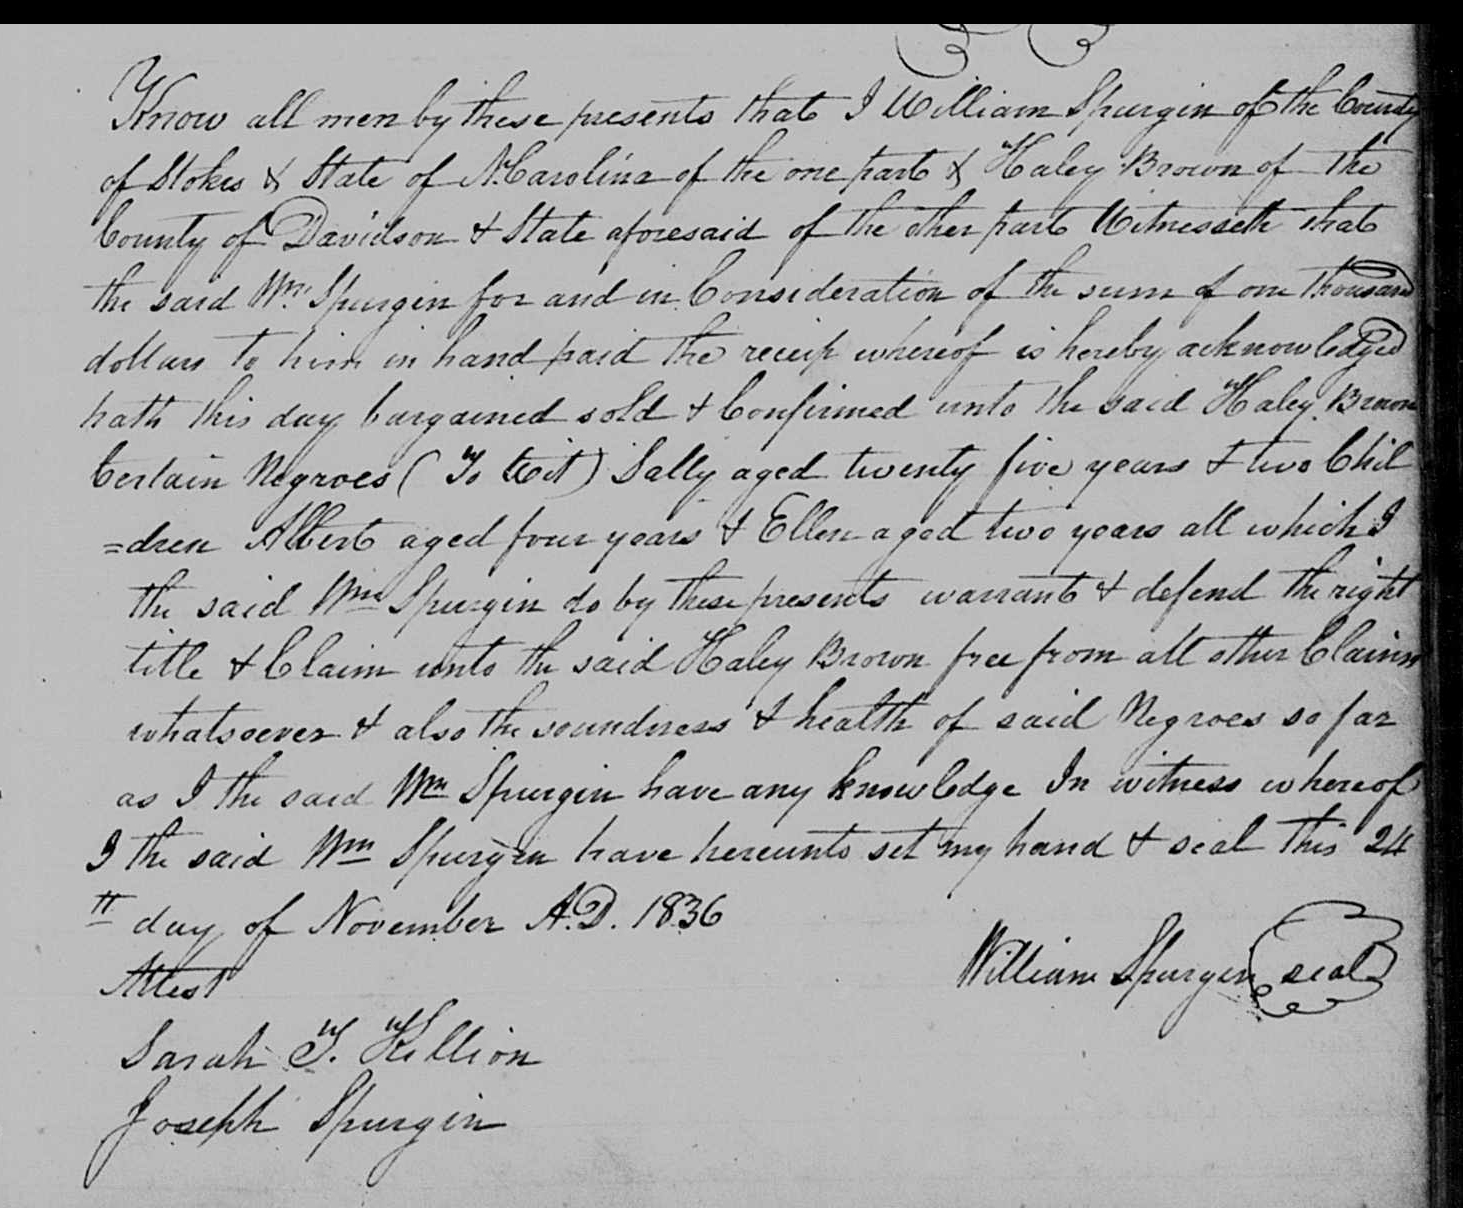 Know all men by these presents that I William Spurgin of the County
of Stokes & State of N. Carolina of the one part & Haley Brown of the
County of Davidson & State aforesaid of the other part Witnesseth that
the said Wm. Spurgin for and in Consideration of the sum of one thousand
dollars to him in hand paid the receip whereof is hereby acknowledged
hath this day bargained sold & Confirmed unto the said Haley Brown
Certain Negroes (To Wit) Sally aged twenty five years & two Chil
=dren Albert aged four years & Ellen aged two years all which I
the said Wm Spurgin do by these presents warrant & defend the right
title & Claim unto the said Haley Brown free from all other Claims
whatsoever & also the soundness & health of said Negroes so far
as I the said Wm Spurgin have any knowledge In witness whereof
I the said Wm Spurgin have hereunto set my hand & seal this 24
th day of November A.D. 1836
William Spurgin seal
Attest
Sarah T. Killion
Joseph Spurgin